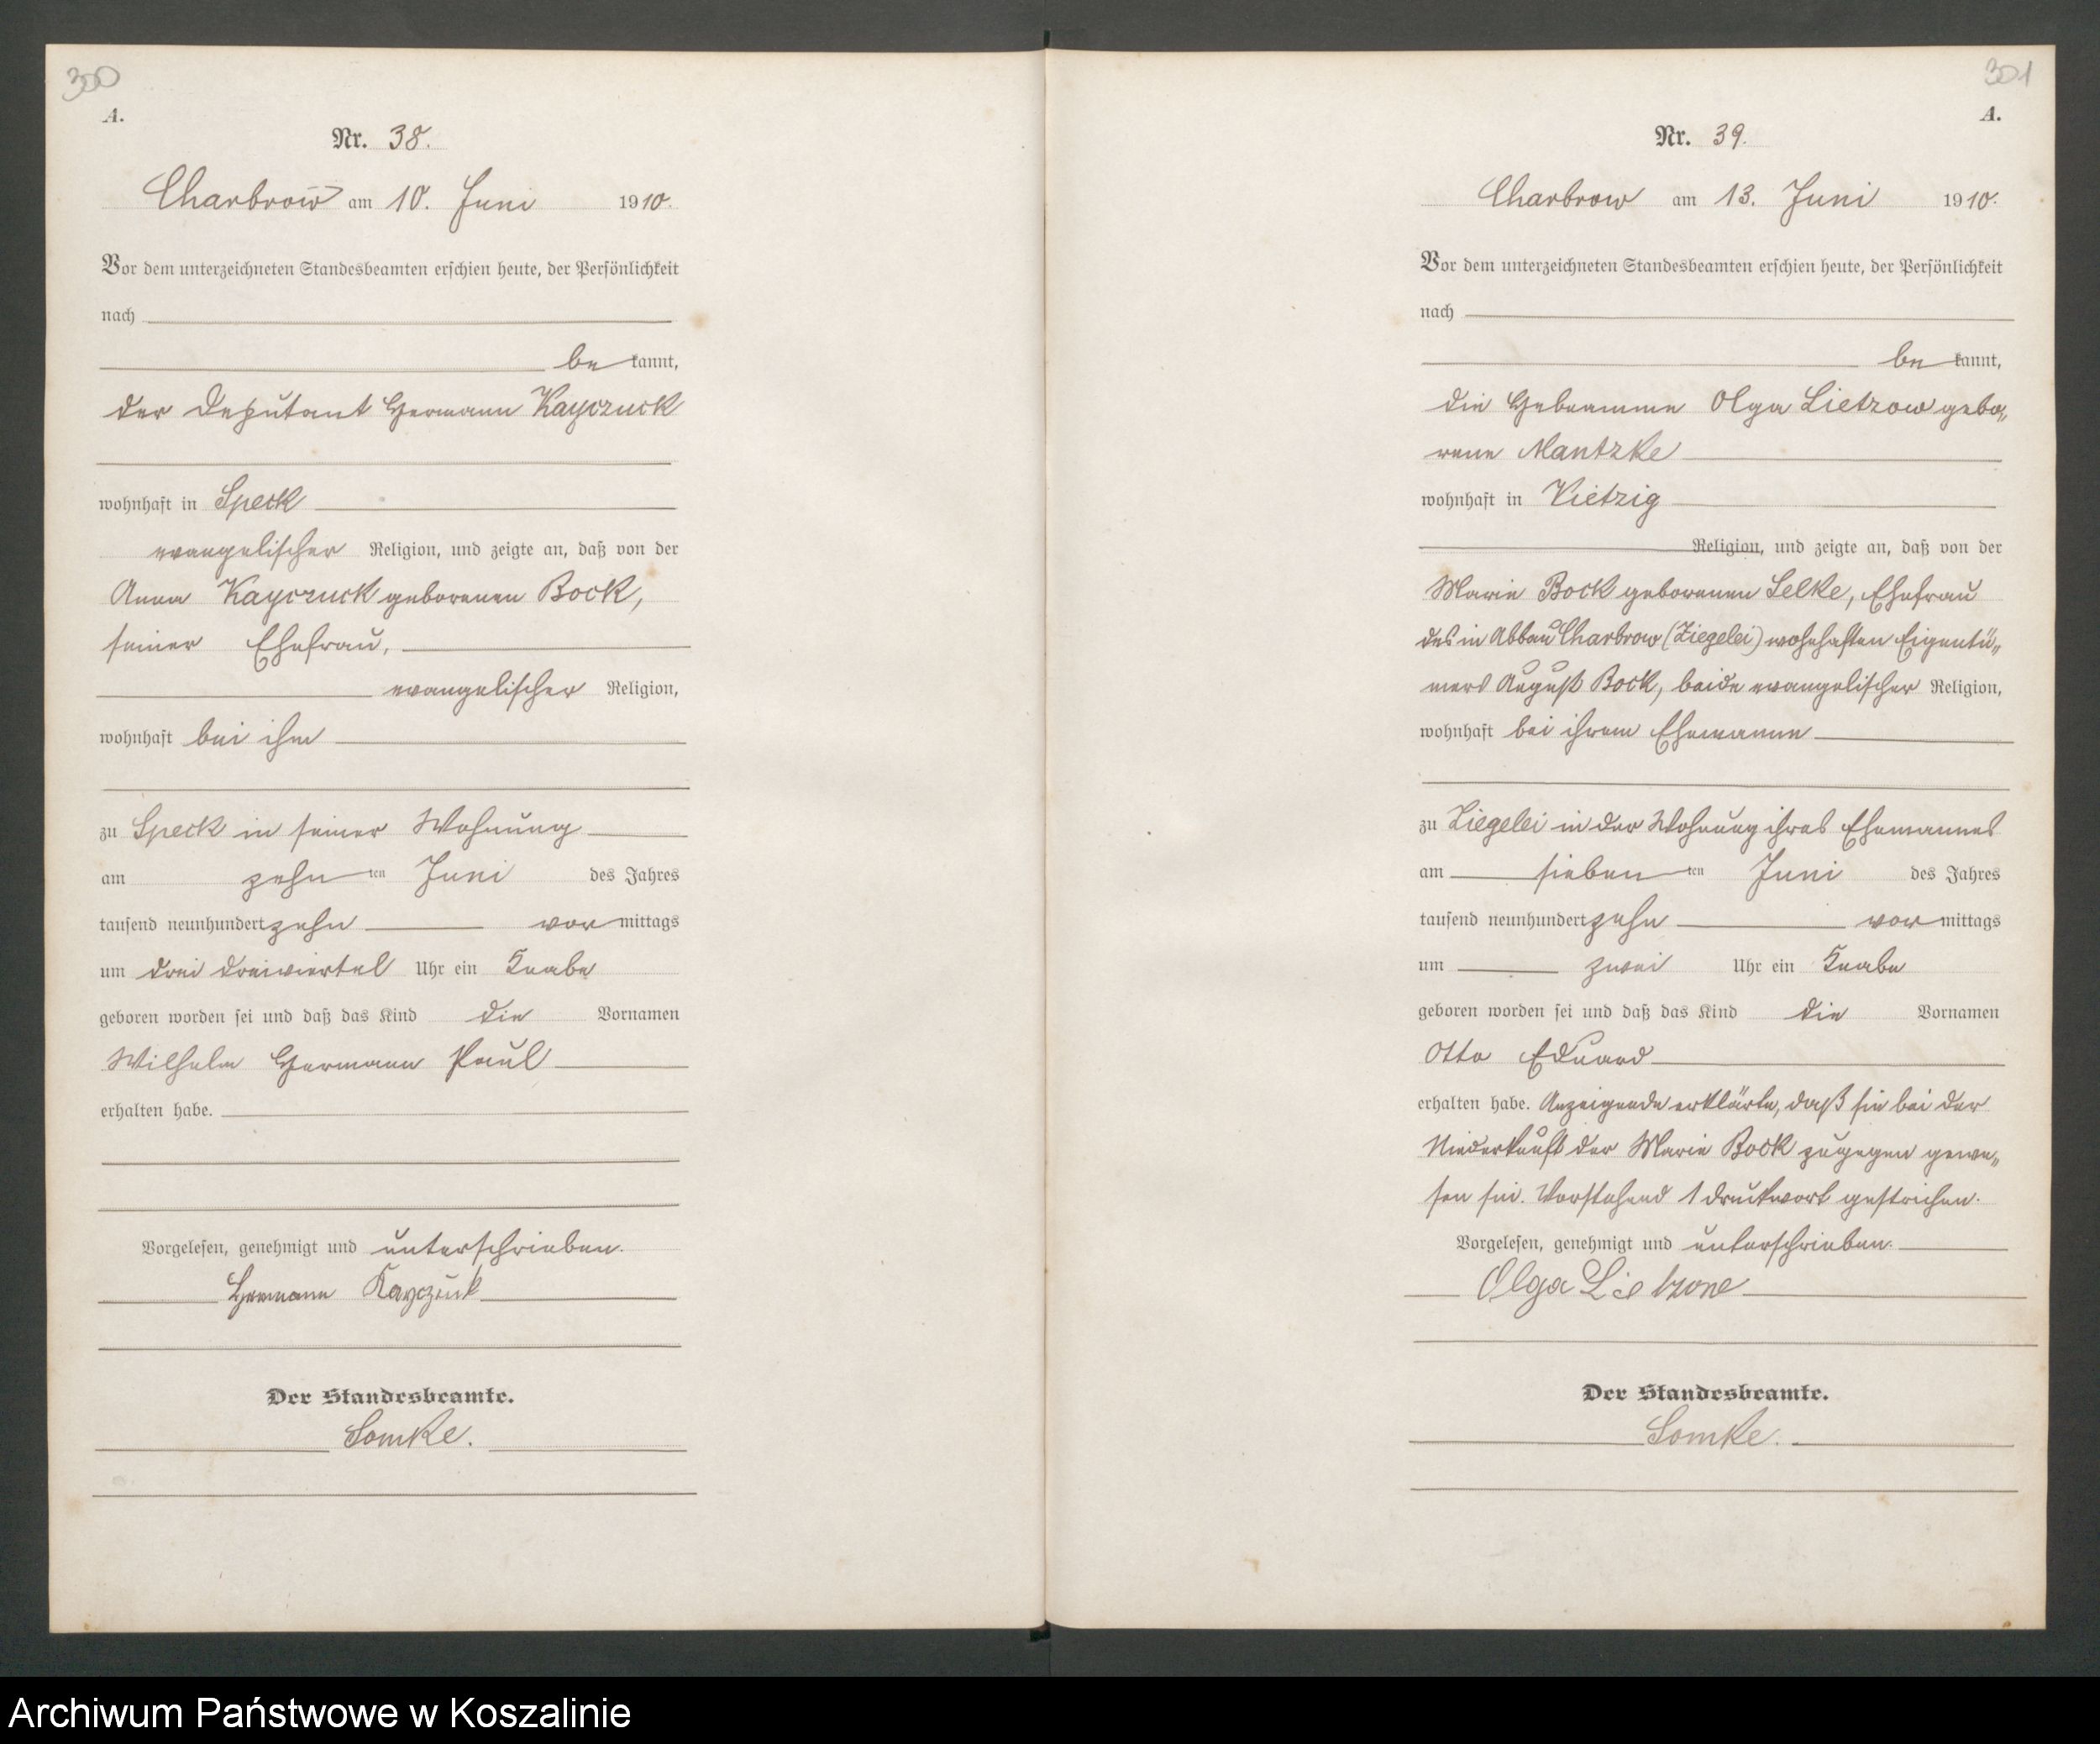 300
A.
Nr. 38.
Charbrow am 10. Juni 1910.
Vor dem unterzeichneten Standesbeamten erschien heute, der Persönlichkeit
nach
be kannt,
der Deputant Hermann Kayczuck
wohnhaft in Speck
evangelischer Religion, und zeigte an, daß von der
Anna Kayczuck geborenen Bock,
seiner Ehefrau,
evangelischer Religion,
wohnhaft bei ihm
zu Speck in seiner Wohnung
am zehn ten Juni des Jahres
tausend neunhundert zehn vor mittags
um drei dreiviertel Uhr ein Knabe
geboren worden sei und daß das Kind die Vornamen
Wilhelm Hermann Paul
erhalten habe.
Vorgelesen, genehmigt und unterschrieben.
Hermann Kayczuk
Der Standesbeamte.
Somke.
301
A.
Nr. 39.
Charbrow am 13. Juni 1910.
Vor dem unterzeichneten Standesbeamten erschien heute, der Persönlichkeit
nach
be kannt,
die Hebeamme Olga Lietzow gebo„
rene Mantzke
wohnhaft in Vietzig
Religion, und zeigte an, daß von der
Marie Bock geborenen Selke, Ehefrau
des in Abbau Charbrow (Ziegelei) wohnhaften Eigentü„
mers August Bock, beide evangelischer Religion,
wohnhaft bei ihrem Ehemanne
zu Ziegelei in der Wohnung ihres Ehemannes
am sieben ten Juni des Jahres
tausend neunhundert zehn vor mittags
um zwei Uhr ein Knabe
geboren worden sei und daß das Kind die Vornamen
Otto Eduard
erhalten habe. Anzeigende erklärte, daß sie bei der
Niederkunft der Marie Bock zugegen gewe„
sen sei. Vorstehend 1 Druckwort gestrichen.
Vorgelesen, genehmigt und unterschrieben.
Olga Lietzow
Der Standesbeamte.
Somke.
Archiwum Państwowe w Koszalinie